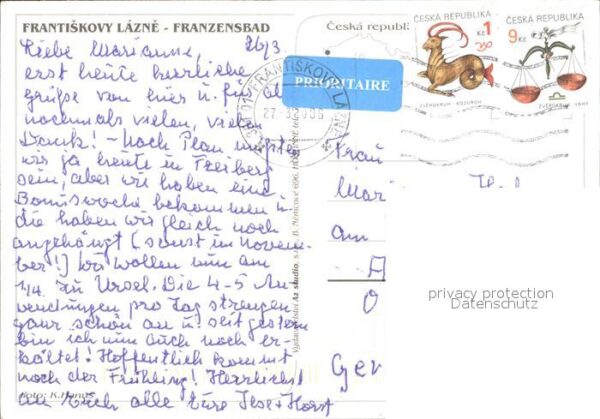 FRANTIŠKOVY LÁZNĚ - FRANZENSBAD
Česká republ
ČESKÁ REPUBLIKA
1 Kč
ZVĚROKRUH KOZOROH
ČESKÁ REPUBLIKA
9 Kč
ZVĚROKRUH VÁHY
PRIORITAIRE
FRANTIŠKOVY LÁZNĚ
Liebe Marianne, 26/3
erst heute herzliche
Grüße von hier u. fürs
nochmals vielen, vielen
Dank! - Nach Plan müßten
wir ja heute in Freiberg
sein, aber wir haben eine
Bonuswoche bekommen u.
die haben wir gleich noch
angehängt (sonst im Novem-
ber!) Wir wollen nun am
1/4. zu Ursel. Die 4-5 An-
wendungen pro Tag strengen
ganz schön an u. seit gestern
bin ich nun auch noch er-
kältet! Hoffentlich kommt
noch der Frühling! Herzlichst
an Euch alle Eure Ilse + Horst
Frau
Mari
am
A
O
Ger
Vydavatelství Az studio, B. Němcové 696,
foto: K.
privacy protection
Datenschutz